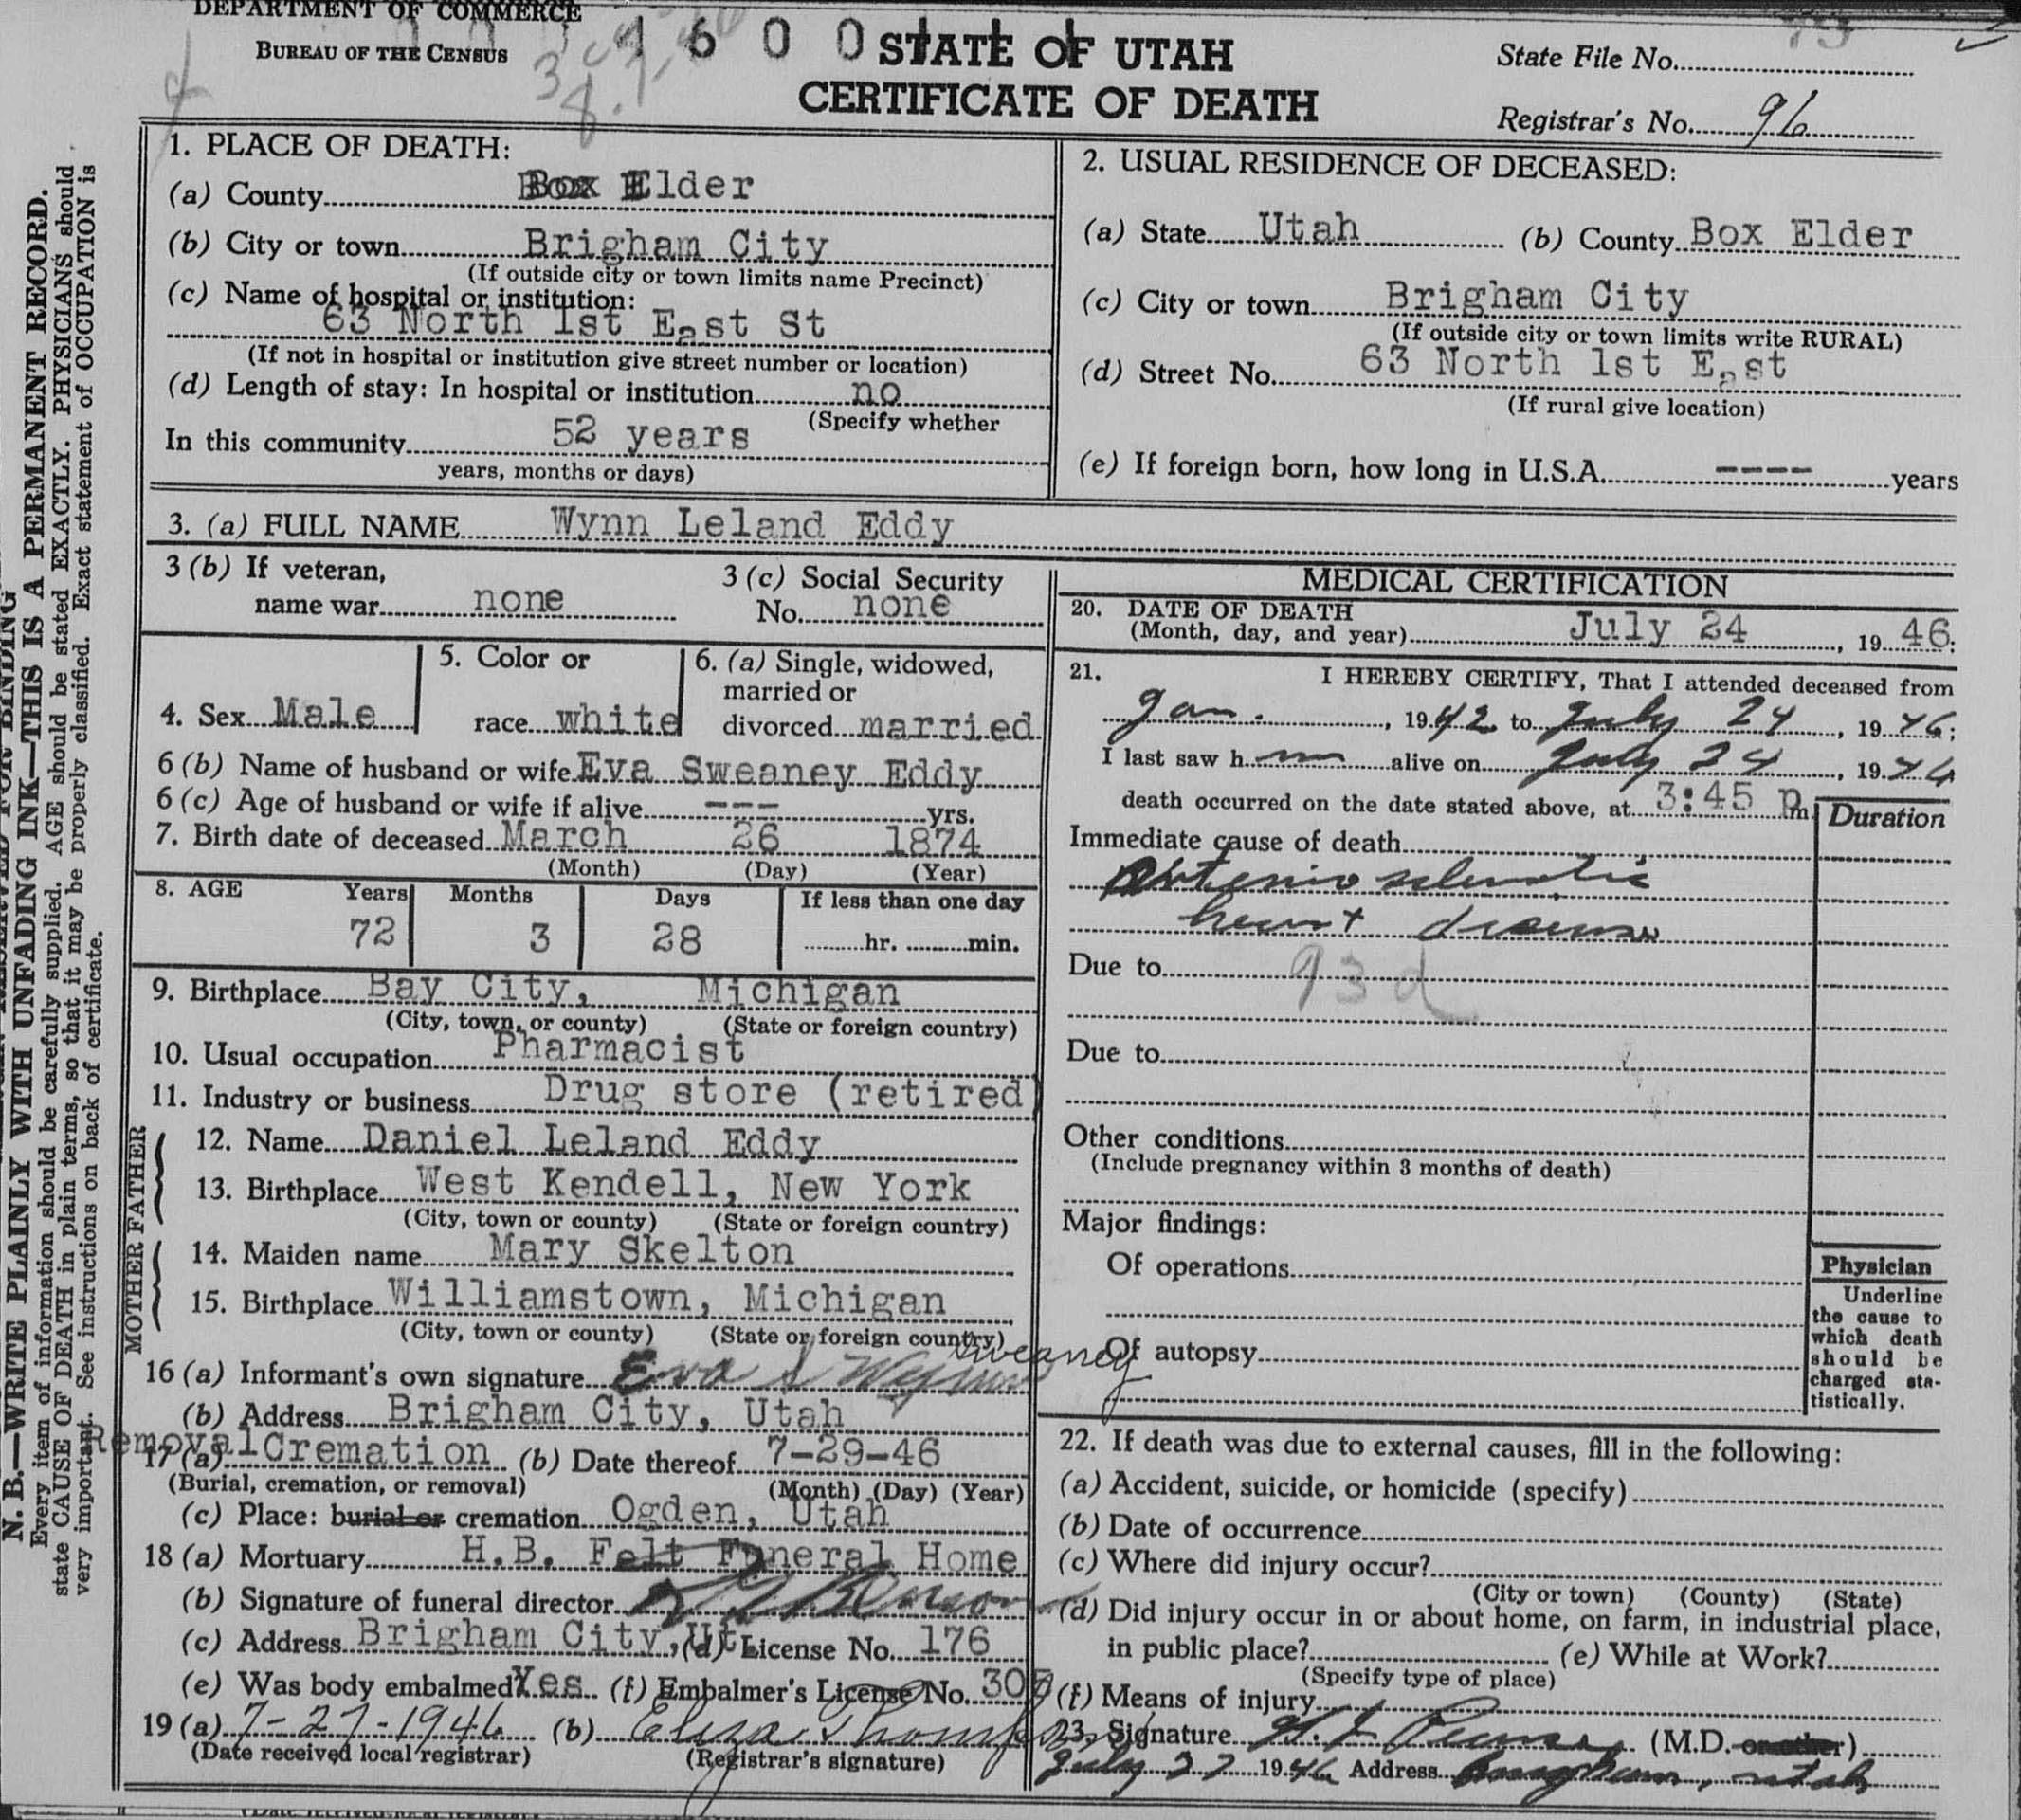 DEPARTMENT OF COMMERCE
BUREAU OF THE CENSUS
1600
STATE OF UTAH
CERTIFICATE OF DEATH
State File No.
Registrar's No. 96
N. B.—WRITE PLAINLY WITH UNFADING INK—THIS IS A PERMANENT RECORD.
Every item of information should be carefully supplied. AGE should be stated EXACTLY. PHYSICIANS should
state CAUSE OF DEATH in plain terms, so that it may be properly classified. Exact statement of OCCUPATION is
very important. See instructions on back of certificate.
1. PLACE OF DEATH:
(a) County Box Elder
(b) City or town Brigham City
(If outside city or town limits name Precinct)
(c) Name of hospital or institution:
63 North 1st East St
(If not in hospital or institution give street number or location)
(d) Length of stay: In hospital or institution no
(Specify whether
In this community 52 years
years, months or days)
2. USUAL RESIDENCE OF DECEASED:
(a) State Utah (b) County Box Elder
(c) City or town Brigham City
(If outside city or town limits write RURAL)
(d) Street No. 63 North 1st East
(If rural give location)
(e) If foreign born, how long in U.S.A. ---- years
3. (a) FULL NAME Wynn Leland Eddy
3 (b) If veteran,
name war none
3 (c) Social Security
No. none
4. Sex Male
5. Color or
race white
6. (a) Single, widowed,
married or
divorced married
6 (b) Name of husband or wife Eva Sweaney Eddy
6 (c) Age of husband or wife if alive --- yrs.
7. Birth date of deceased March 26 1874
(Month) (Day) (Year)
8. AGE Years Months Days If less than one day
72 3 28 hr. min.
9. Birthplace Bay City, Michigan
(City, town, or county) (State or foreign country)
10. Usual occupation Pharmacist
11. Industry or business Drug store (retired)
FATHER
12. Name Daniel Leland Eddy
13. Birthplace West Kendell, New York
(City, town or county) (State or foreign country)
MOTHER
14. Maiden name Mary Skelton
15. Birthplace Williamstown, Michigan
(City, town or county) (State or foreign country)
Sweaney
16 (a) Informant's own signature Eva S
(b) Address Brigham City, Utah
17 (a) Removal Cremation (b) Date thereof 7-29-46
(Burial, cremation, or removal) (Month) (Day) (Year)
(c) Place: burial or cremation Ogden, Utah
18 (a) Mortuary H.B. Felt Funeral Home
(b) Signature of funeral director
(c) Address Brigham City, Ut. (d) License No. 176
(e) Was body embalmed Yes (f) Embalmer's License No.
19 (a) 7-27-1946 (b) Eliza Thompson
(Date received local registrar) (Registrar's signature)
MEDICAL CERTIFICATION
20. DATE OF DEATH
(Month, day, and year) July 24, 1946.
21. I HEREBY CERTIFY, That I attended deceased from
Jan. , 1942 to July 24, 1946;
I last saw him alive on July 24, 1946
death occurred on the date stated above, at 3:45 p m.
Duration
Immediate cause of death
Arteriosclerotic
heart disease
Due to 93d
Due to
Other conditions
(Include pregnancy within 3 months of death)
Major findings:
Of operations
Of autopsy
Physician
Underline
the cause to
which death
should be
charged sta-
tistically.
22. If death was due to external causes, fill in the following:
(a) Accident, suicide, or homicide (specify)
(b) Date of occurrence
(c) Where did injury occur?
(City or town) (County) (State)
(d) Did injury occur in or about home, on farm, in industrial place,
in public place? (e) While at Work?
(Specify type of place)
(f) Means of injury
23. Signature (M.D. or other)
July 27 1946 Address Brigham, Utah